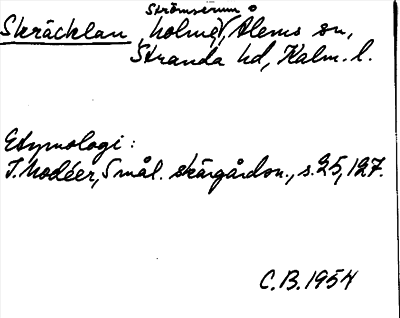 Strömserum
Skräcklan, holme, Ålems sn,
Stranda hd, Kalm. l.
Etymologi:
I. Modéer, Smål. skärgårdsn., s. 25, 127.
C.B. 1954